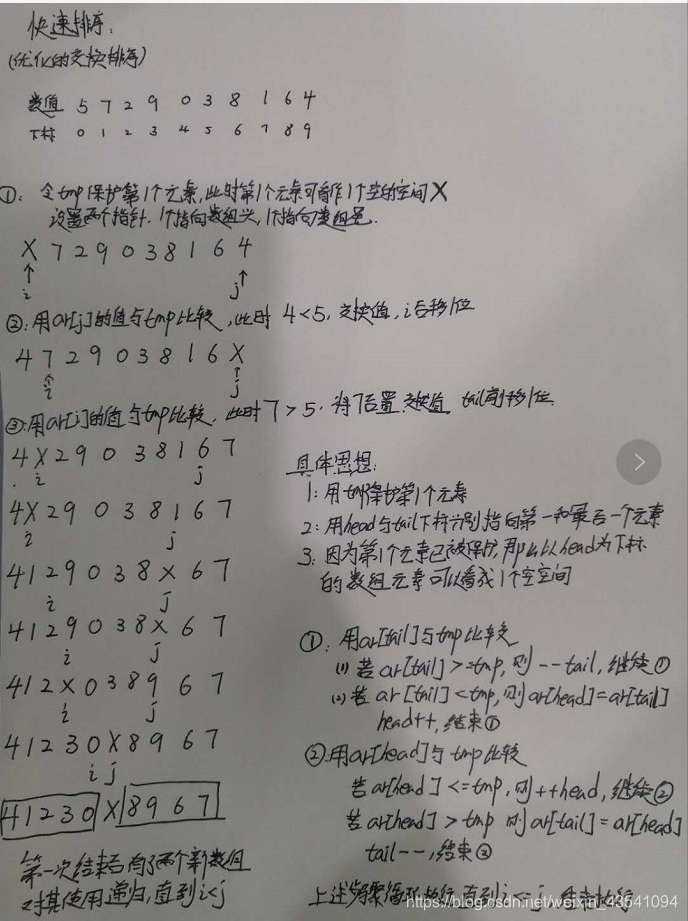 快速排序:
(优化的交换排序)
数值 5 7 2 9 0 3 8 1 6 4
下标 0 1 2 3 4 5 6 7 8 9
①: 令tmp保护第1个元素,此时第1个元素可看作1个空的空间X
设置两个指针,1个指向数组头,1个指向数组尾.
X 7 2 9 0 3 8 1 6 4
i j
②: 用ar[j]的值与tmp比较,此时 4<5, 交换值, i后移1位
4 7 2 9 0 3 8 1 6 X
i j
③:用ar[i]的值与tmp比较, 此时7>5, 将7后置 交换值 tail前移1位.
4 X 2 9 0 3 8 1 6 7
i j
4 X 2 9 0 3 8 1 6 7
i j
4 1 2 9 0 3 8 X 6 7
i j
4 1 2 9 0 3 8 X 6 7
i j
4 1 2 X 0 3 8 9 6 7
i j
4 1 2 3 0 X 8 9 6 7
i j
4 1 2 3 0 X 8 9 6 7
第一次结束后有了两个新数组
对其使用递归,直到i<j
具体思想:
1: 用tmp保护第1个元素
2: 用head与tail下标分别指向第一和最后一个元素
3: 因为第1个元素已被保护,那么以head为下标
的数组元素可以看成1个空空间
①: 用ar[tail]与tmp比较
(1) 若 ar[tail]>=tmp, 则 --tail, 继续①
(2) 若 ar[tail]<tmp, 则ar[head]=ar[tail]
head++, 结束①
②:用ar[head]与tmp比较
若ar[head]<=tmp, 则++head, 继续②
若ar[head]>tmp 则ar[tail]=ar[head]
tail--, 结束②
上述步骤循环执行 直到i<=j
https://blog.csdn.net/weixin_43541094